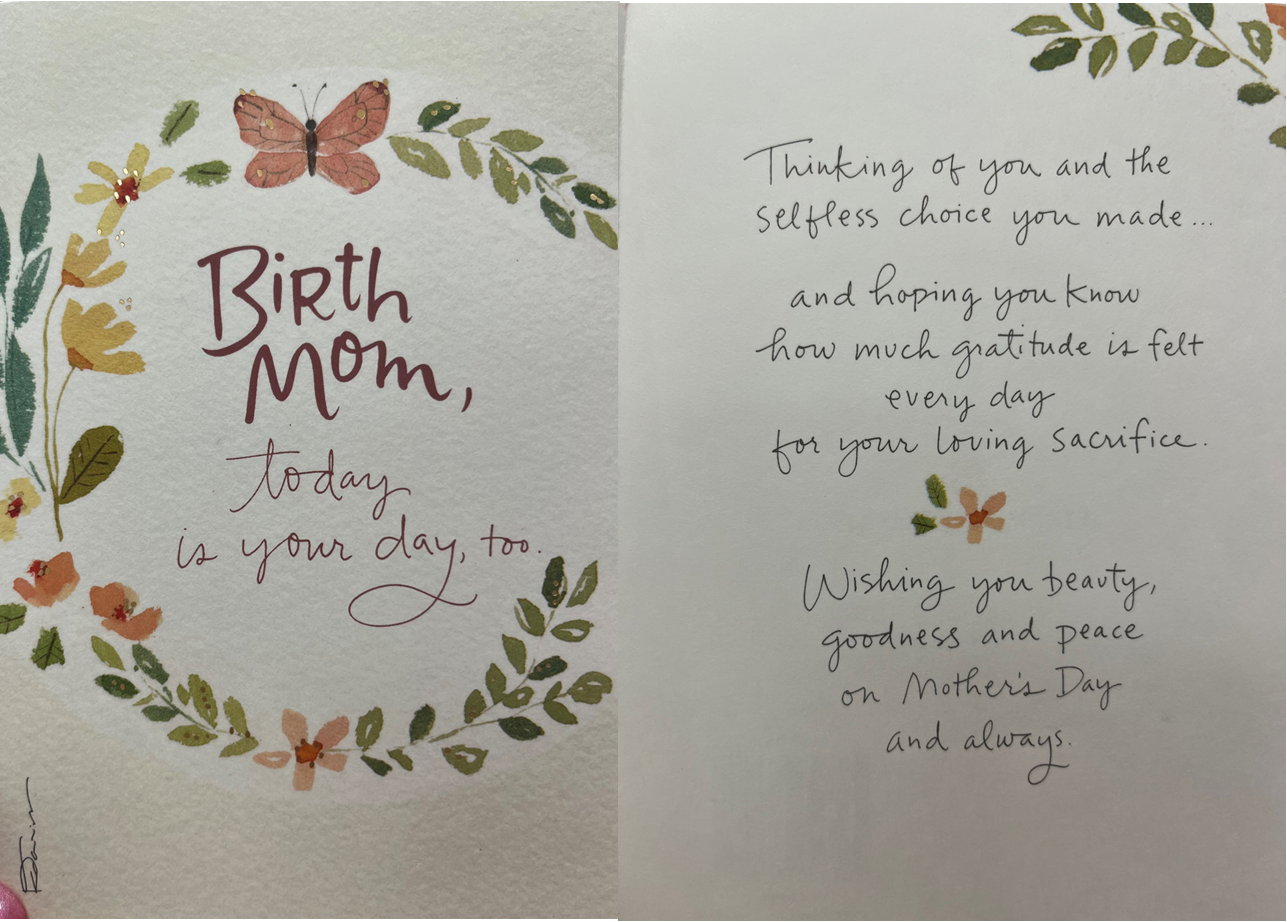 Birth
Mom,
today
is your day, too.
Thinking of you and the
selfless choice you made...
and hoping you know
how much gratitude is felt
every day
for your loving sacrifice.
Wishing you beauty,
goodness and peace
on Mother's Day
and always.